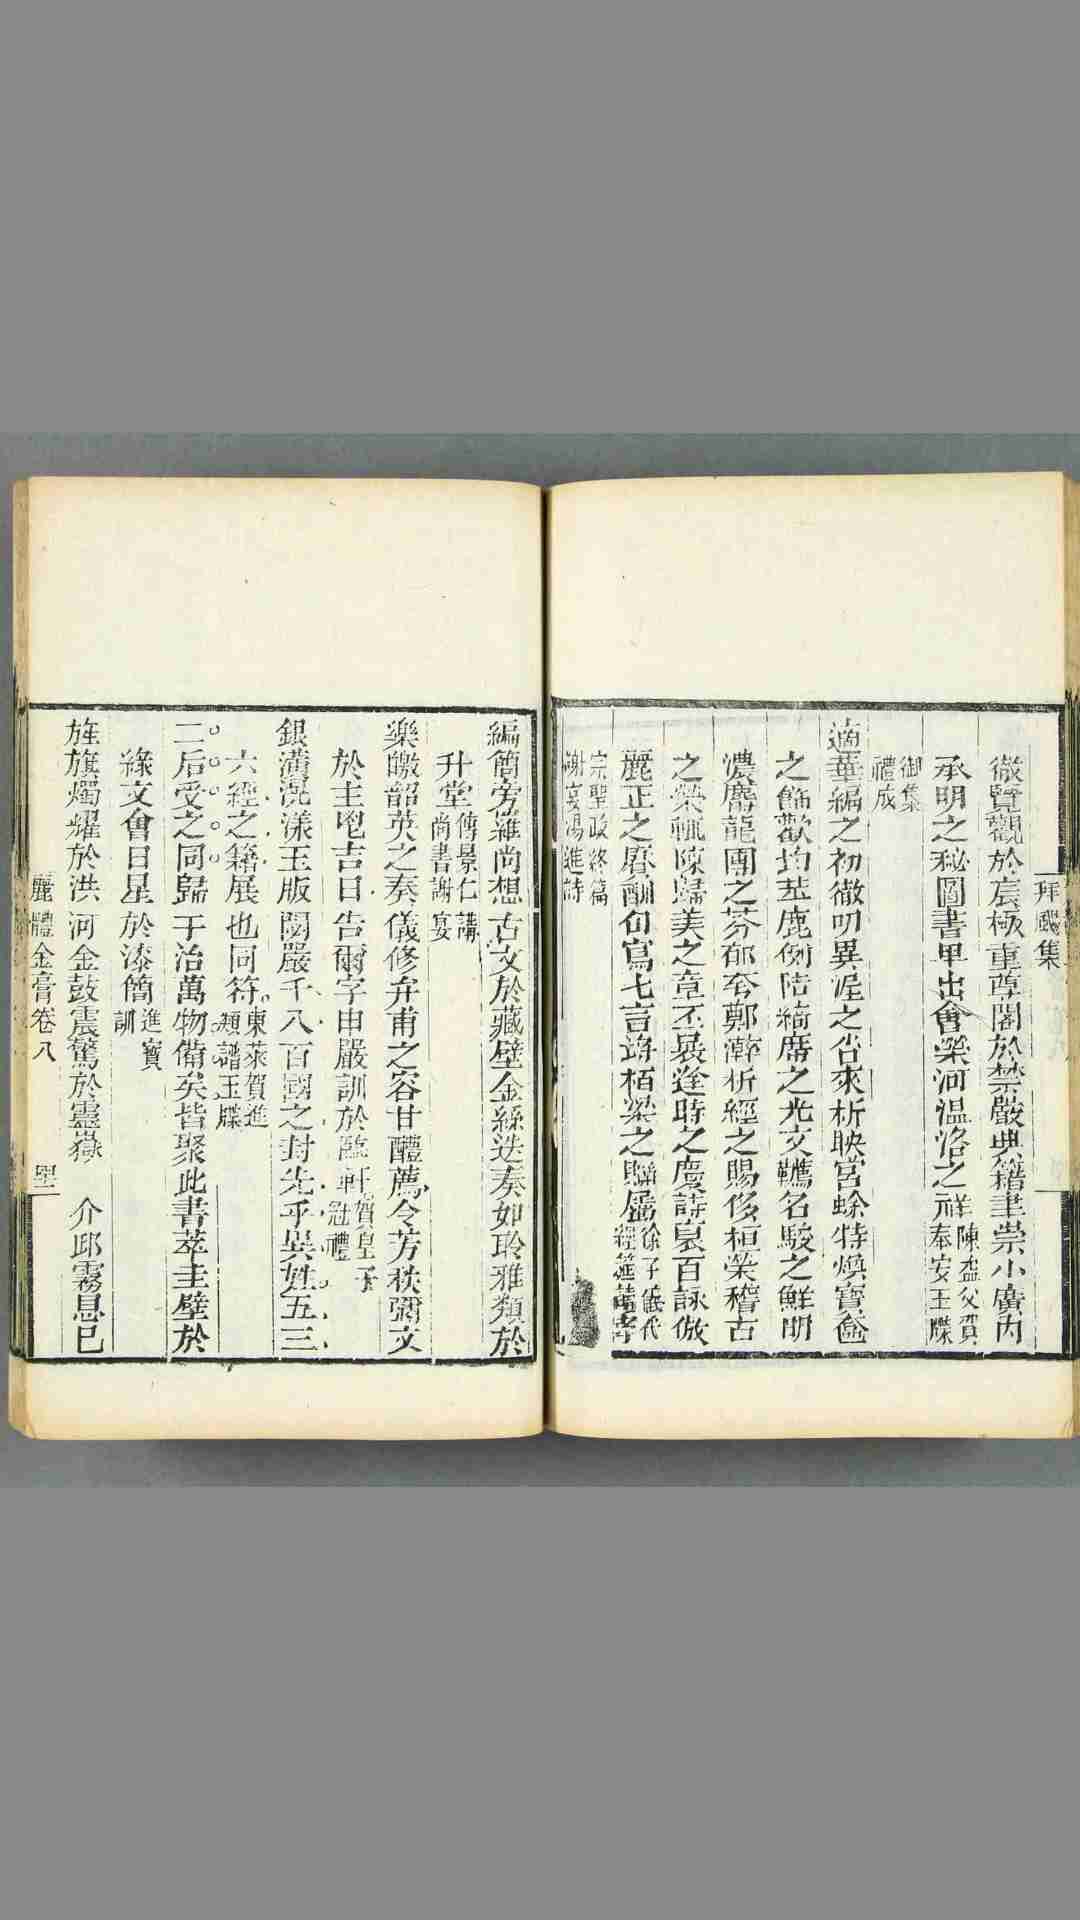 拜颺集
徹覽觀於宸極重尊閣於禁嚴典籍聿崇小廣內
承明之秘圖書畢出會榮河溫洛之祥陳盍父賀
奉安玉牒
御集
禮成
適華編之初徹叨異渥之沓來析映宮蜍特煥寶奩
之飾歡均苹鹿例陪綺席之光文韉名駿之鮮明
濃麝龍團之芬郁夸鄭澣析經之賜侈桓榮稽古
之榮輒陳歸美之章丕曩逢時之慶詩裒百詠倣
麗正之賡酬句寫七言諧栢梁之賦屬徐子儀代
經筵薦
宗聖政終篇
謝宴湯進詩
編簡旁羅尚想古文於藏壁金絲迭奏如聆雅頖於
升堂傅景仁講
尚書謝宴
樂皦韶英之奏儀修弁甫之容甘醴薦令芳秩彌文
於主鬯吉日告爾字申嚴訓於臨軒賀皇子
冠禮
銀潢滉漾玉版閎嚴千八百國之封先乎異姓五三
六經之籍展也同符東萊賀進
類譜玉牒
二后受之同歸于治萬物備矣皆聚此書萃圭璧於
綠文會日星於漆簡進寶
訓
旌旗燭耀於洪河金鼓震驚於靈嶽 介邱霧息已
麗體金膏卷八